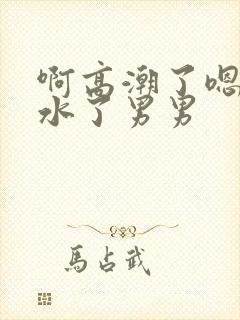 啊高潮了嗯
水了男男
馬占武